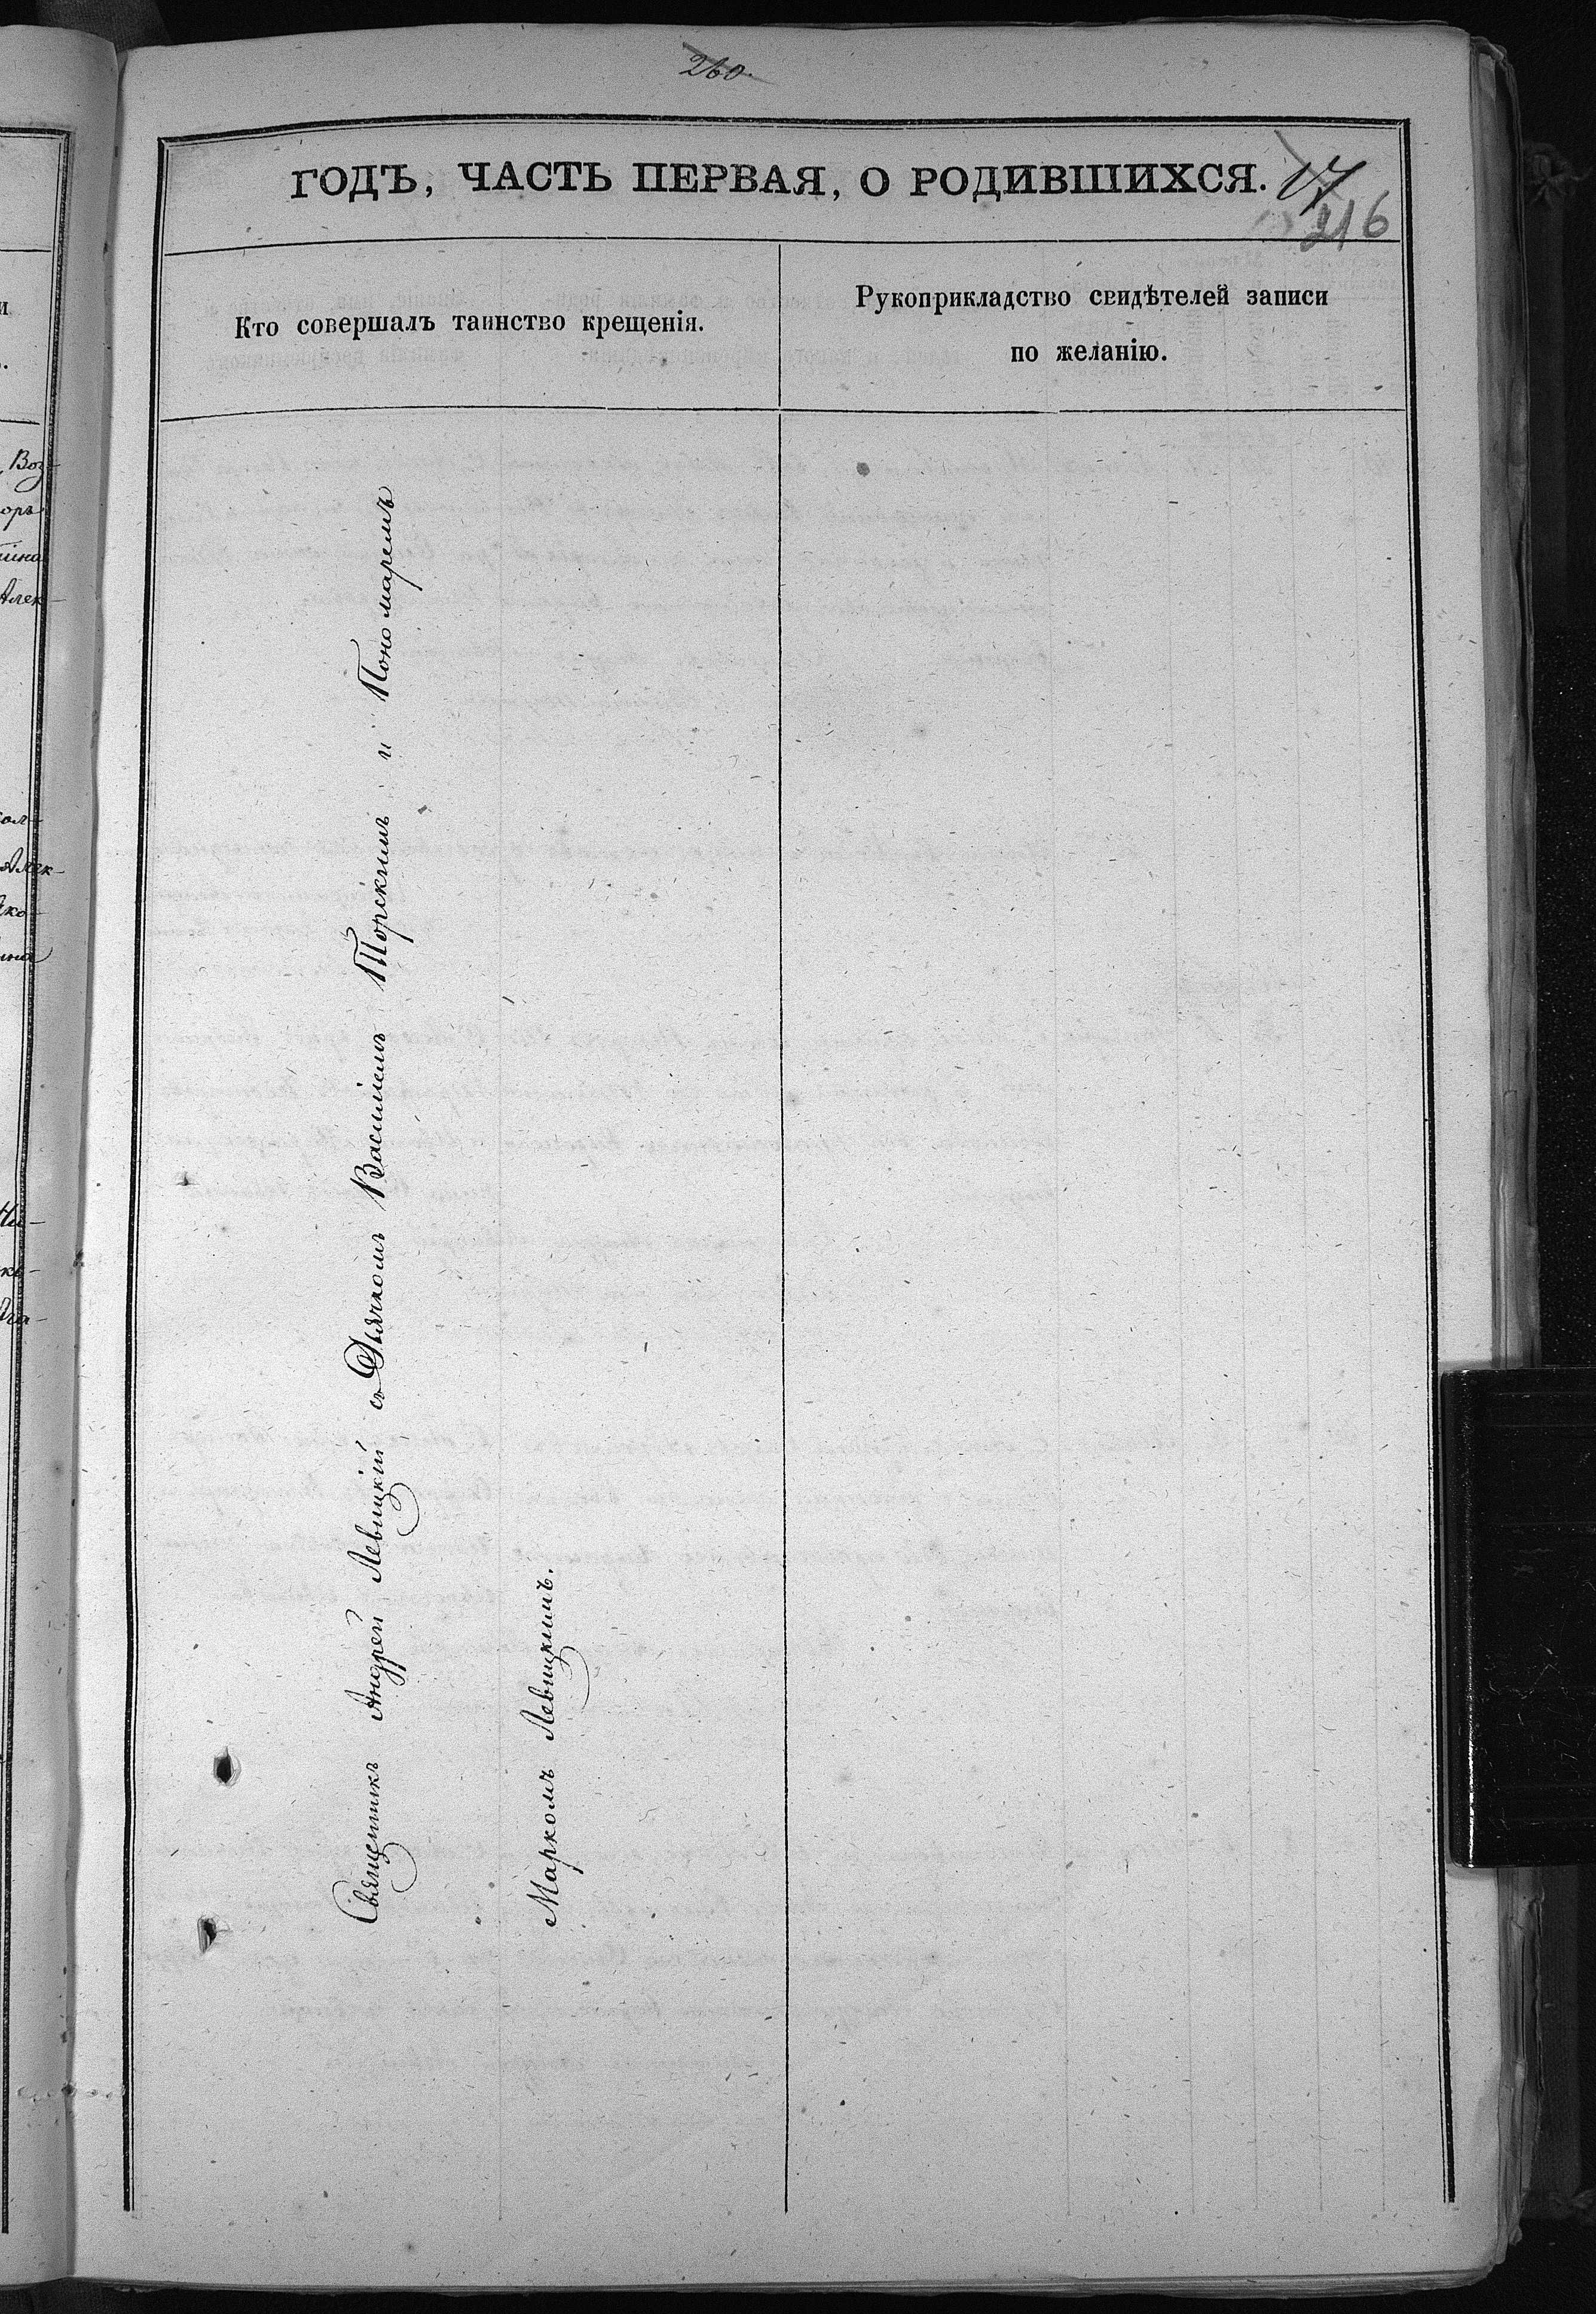 260.
ГОДЪ, ЧАСТЬ ПЕРВАЯ, О РОДИВШИХСЯ.
17
216
Кто совершалъ таинство крещенія.
Рукоприкладство свидѣтелей записи
по желанію.
Священникъ Андрей Левицкій съ Дьячкомъ Василіемъ Торскимъ и Пономаремъ
Маркомъ Левицкимъ.